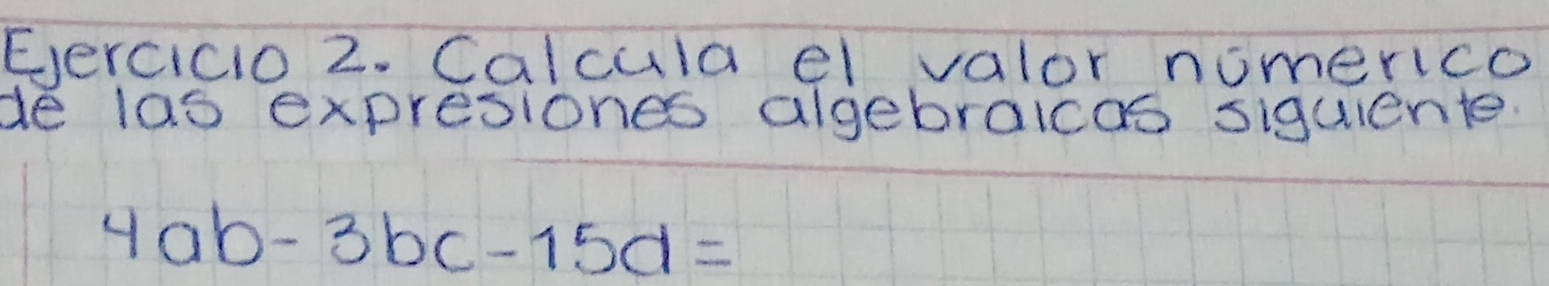 Ejercicio 2. Calcula el valor númerico
de las expresiones algebraicas siguiente.
4ab - 3bc - 15d =